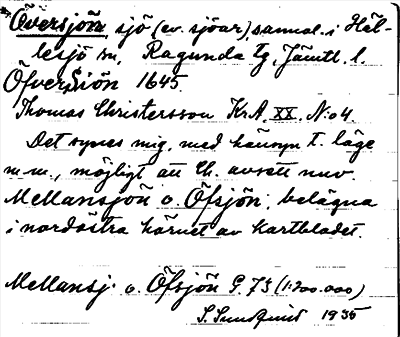 *Översjön, sjö (ev. sjöar), saml. i Häl-
lesjö sn, Ragunda tg, Jämtl. l.
Öfversiön 1645.
Thomas Christersson KrA. XX. N:o 4.
Det synes mig, med hänsyn t. läge
m.m., möjligt att Ch. avsett nuv.
Mellansjön o. Öfsjön, belägna
i nordöstra hörnet av kartbladet.
Mellansj. o. Öfsjön G. 73 (1:200.000)
S. Sundquist 1935